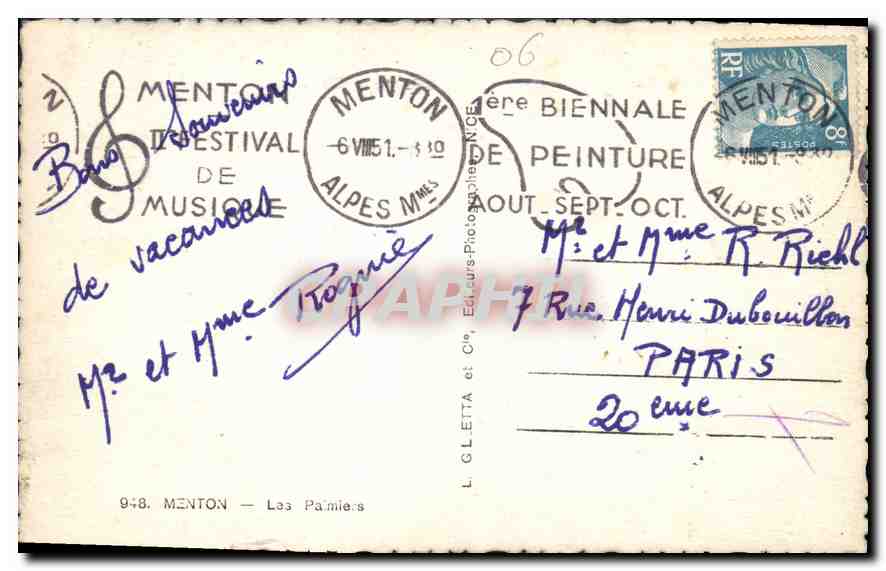 06
MENTON
IIe FESTIVAL
DE
MUSIQUE
MENTON
-6 VIII 51. -
ALPES Mmes
1ère BIENNALE
DE PEINTURE
AOUT_SEPT_OCT.
MENTON
ALPES M
RF
8F
POSTES
Bons Souvenirs
de vacances
Mr et Mme
Mr et Mme R. Riehl
7 Rue Henri Dubouillon
PARIS
20eme
L. GILLETTA et Cie, Editeurs-Photographes, NICE
948. MENTON — Les Palmiers